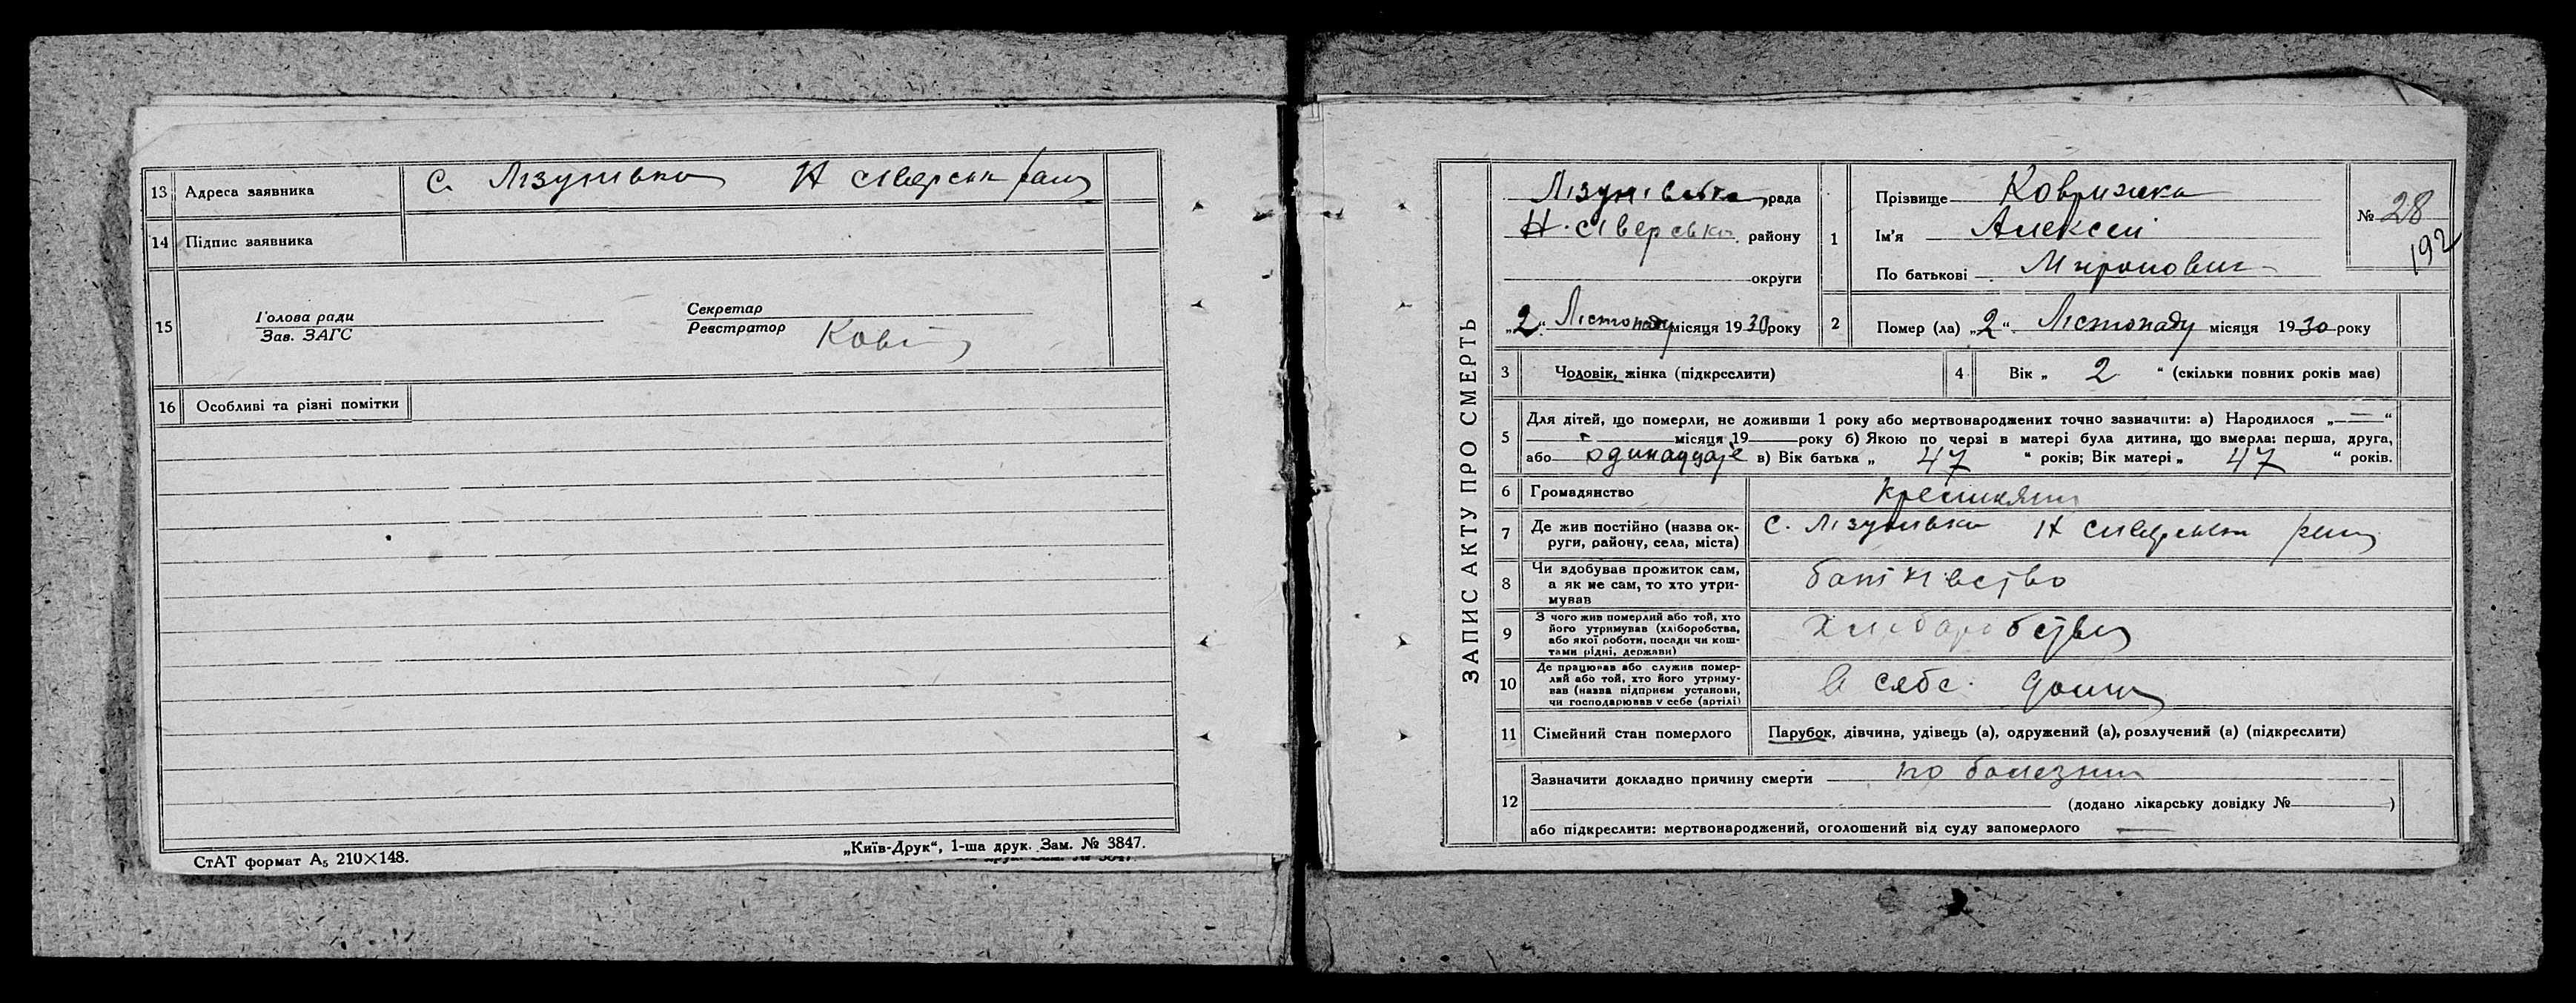 13 Адреса заявника С. Лізунівка Н сіверськ раш
14 Підпис заявника
15 Голова ради
Зав. ЗАГС
Секретар
Реєстратор
16 Особливі та різні помітки
СтАТ формат А5 210×148.
„Київ-Друк“, 1-ша друк. Зам. № 3847.
ЗАПИС АКТУ ПРО СМЕРТЬ
Лізунівська рада
Н. сіверсько району
округи
„2“ Лістопаду місяця 1930 року
1 Прізвище Коврижка
Ім'я Алексеі
По батькові Миронович
№ 28
192
2 Помер (ла) „2“ Лістопаду місяця 1930 року
3 Чоловік, жінка (підкреслити)
4 Вік „ 2 “ (скільки повних років має)
5 Для дітей, що померли, не доживши 1 року або мертвонароджених точно зазначити: а) Народилося „—“
місяця 19 року б) Якою по черзі в матері була дитина, що вмерла: перша, друга,
або в) Вік батька „ 47 “ років; Вік матері „ 47 “ років.
6 Громадянство
7 Де жив постійно (назва ок-
руги, району, села, міста) С. Лізунівка Н сіверськ
8 Чи здобував прожиток сам,
а як не сам, то хто утри-
мував батківство
9 З чого жив померлий або той, хто
його утримував (хліборобства,
або якої роботи, посади чи кош-
тами рідні, держави) хліборобство
10 Де працював або служив помер-
лий або той, хто його утриму-
вав (назва підприєм установи,
чи господарював у себе (артілі) В себе дома
11 Сімейний стан померлого Парубок, дівчина, удівець (а), одружений (а), розлучений (а) (підкреслити)
12 Зазначити докладно причину смерти по болезни
(додано лікарську довідку № )
або підкреслити: мертвонароджений, оголошений від суду запомерлого —